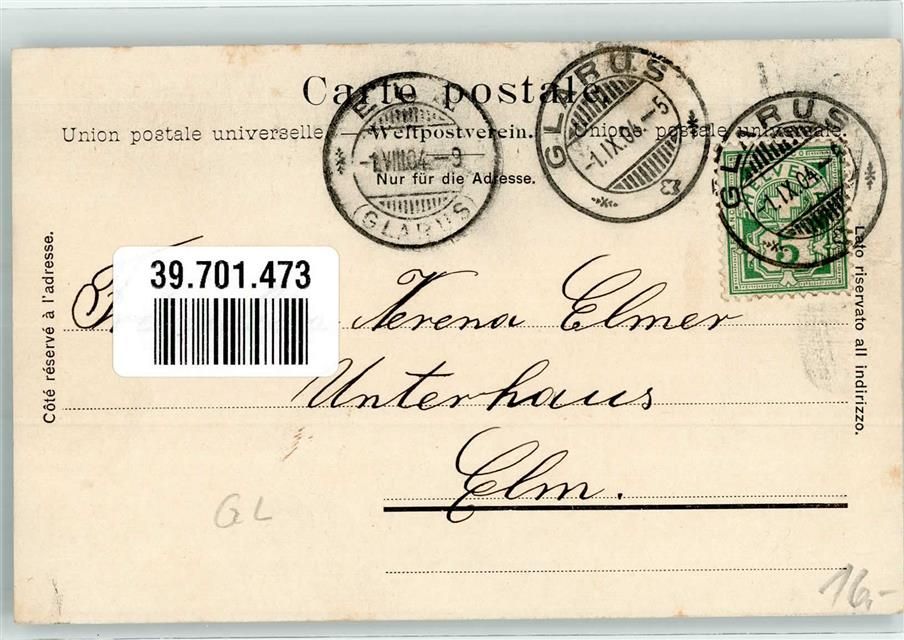 Carte postale.
Union postale universelle. — Weltpostverein. — Unione postale universale.
Nur für die Adresse.
ELM
-1.VIII.04.-9
(GLARUS)
GLARUS
-1.IX.04.-5
GLARUS
-1.IX.04.-
HELVETIA
5
Côté réservé à l'adresse.
Lato riservato all indirizzo.
39.701.473
Verena Elmer
Unterhaus
Elm.
GL
16,-